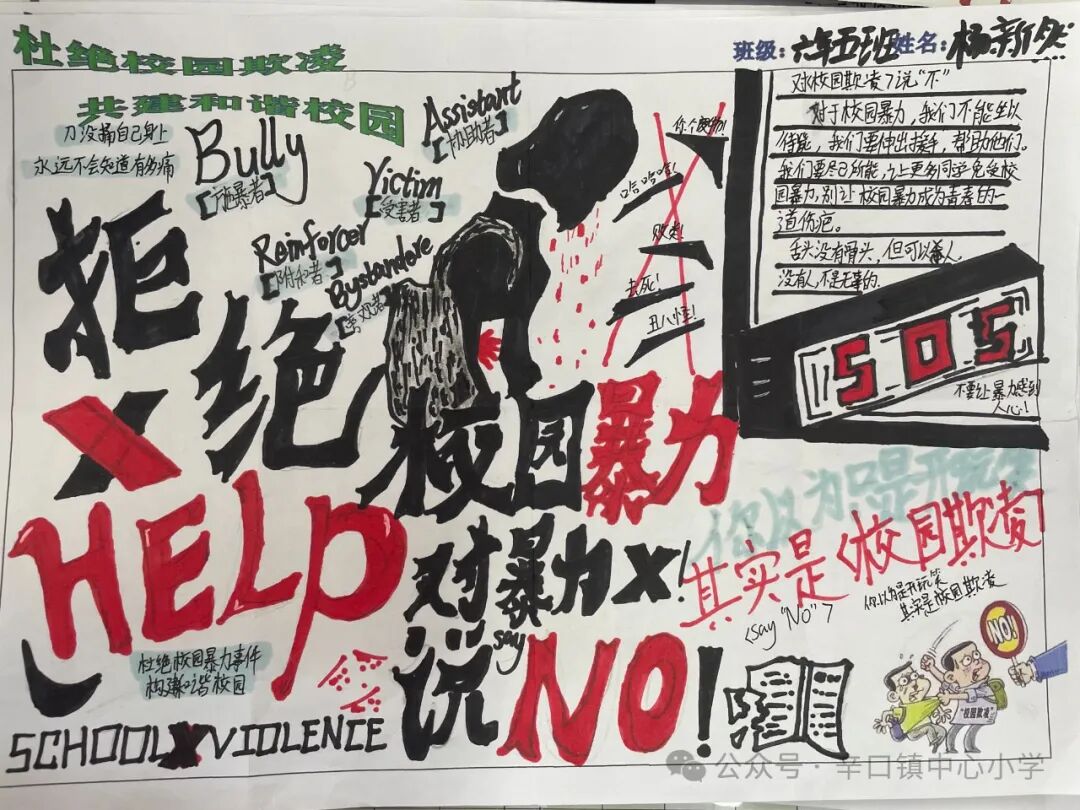 杜绝校园欺凌
共建和谐校园
班级:六年五班姓名:杨新然
刀没捅自己身上
永远不会知道有多痛
Bully
【施暴者】
Assistant
【协助者】
Victim
【受害者】
Reinforcer
【附和者】
Bystandere
【旁观者】
哈哈哈!
败类!
去死!
丑八怪!
对校园欺凌了说“不”
对于校园暴力,我们不能坐以
待毙,我们要伸出援手,帮助他们。
我们要尽己所能,让更多同学免受校
园暴力,别让校园暴力成为青春的一
道伤疤。
舌头没有骨头,但可以
没有人,不是无辜的.
SOS
不要让暴力感到
人心!
拒绝
校园暴力
X
HELP
对暴力X!
say
说NO!
你以为只是开玩笑
其实是<校园欺凌
<say "NO">
你以为是开玩笑
其实是校园欺凌
NO!
"校园欺凌"
杜绝校园暴力事件
构建和谐校园
SCHOOL X VIOLENCE
公众号·辛口镇中心小学